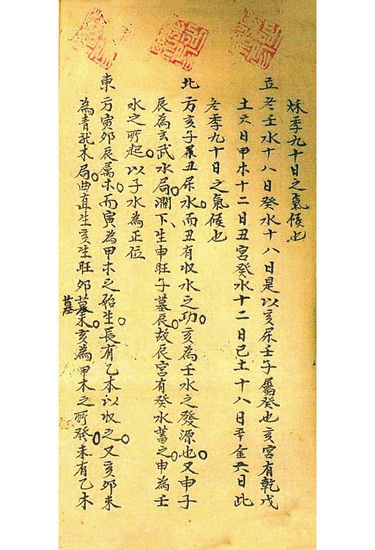 秌季九十日之氣候也
立冬壬水十八日癸水十八日是以亥屬壬子屬癸也亥宮有乾戊
土六日甲木十二日丑宮癸水十二日己土十八日辛金六日此
冬季九十日之氣候也
北方亥子丑屬水而丑有収水之功亥為壬水之發源也又申子
辰為玄武水局潤下生申旺子墓辰故辰宮有癸水蓄之申為壬
水之所起以子水為正位
東方寅卯辰屬木而寅為甲木之始生長有乙木以収之又亥卯未
為青龍木局曲直生亥生旺卯墓未亥為甲木之所發未有乙木
墓